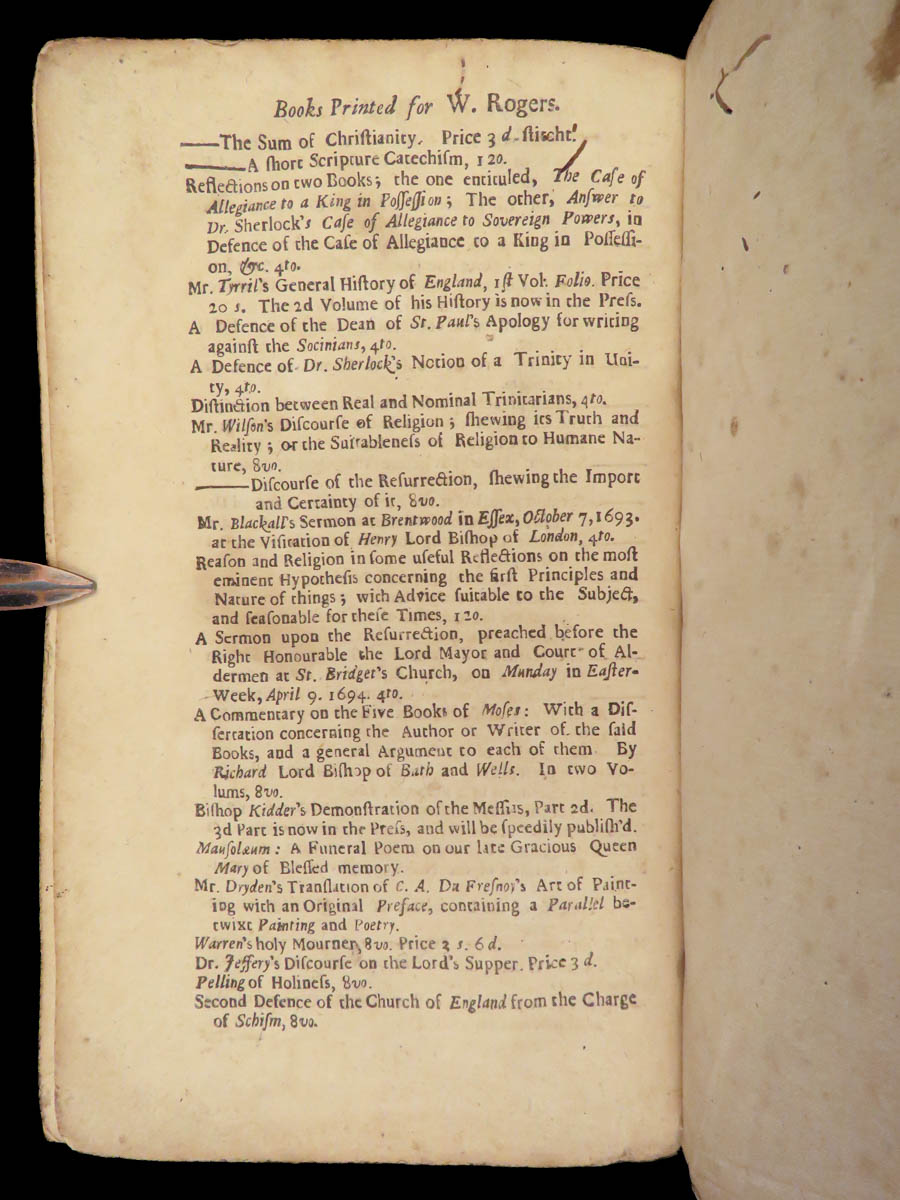 Books Printed for W. Rogers.
——The Sum of Chriſtianity. Price 3 d. ſtitcht.
———A ſhort Scripture Catechiſm, 120.
Reflections on two Books; the one entituled, The Caſe of
Allegiance to a King in Poſſeſſion; The other, Anſwer to
Dr. Sherlock's Caſe of Allegiance to Sovereign Powers, in
Defence of the Caſe of Allegiance to a King in Poſſeſſi-
on, &c. 4to.
Mr. Tyrril's General Hiſtory of England, 1ſt Vol. Folio. Price
20 s. The 2d Volume of his Hiſtory is now in the Preſs.
A Defence of the Dean of St. Paul's Apology for writing
againſt the Socinians, 4to.
A Defence of Dr. Sherlock's Notion of a Trinity in Uni-
ty, 4to.
Diſtinction between Real and Nominal Trinitarians, 4to.
Mr. Wilſon's Diſcourſe of Religion; ſhewing its Truth and
Reality; or the Suitableneſs of Religion to Humane Na-
ture, 8vo.
———Diſcourſe of the Reſurrection, ſhewing the Import
and Certainty of it, 8vo.
Mr. Blackall's Sermon at Brentwood in Eſſex, October 7, 1693.
at the Viſitation of Henry Lord Biſhop of London, 4to.
Reaſon and Religion in ſome uſeful Reflections on the moſt
eminent Hypotheſis concerning the firſt Principles and
Nature of things; with Advice ſuitable to the Subject,
and ſeaſonable for theſe Times, 120.
A Sermon upon the Reſurrection, preached before the
Right Honourable the Lord Mayor and Court of Al-
dermen at St. Bridget's Church, on Munday in Eaſter-
Week, April 9. 1694. 4to.
A Commentary on the Five Books of Moſes: With a Diſ-
ſertation concerning the Author or Writer of the ſaid
Books, and a general Argument to each of them. By
Richard Lord Biſhop of Bath and Wells. In two Vo-
lums, 8vo.
Biſhop Kidder's Demonſtration of the Meſſias, Part 2d. The
3d Part is now in the Preſs, and will be ſpeedily publiſh'd.
Mauſolæum: A Funeral Poem on our late Gracious Queen
Mary of Bleſſed memory.
Mr. Dryden's Tranſlation of C. A. Du Freſnoy's Art of Paint-
ing with an Original Preface, containing a Parallel be-
twixt Painting and Poetry.
Warren's holy Mourner, 8vo. Price 3 s. 6 d.
Dr. Jeffery's Diſcourſe on the Lord's Supper. Price 3 d.
Pelling of Holineſs, 8vo.
Second Defence of the Church of England from the Charge
of Schiſm, 8vo.